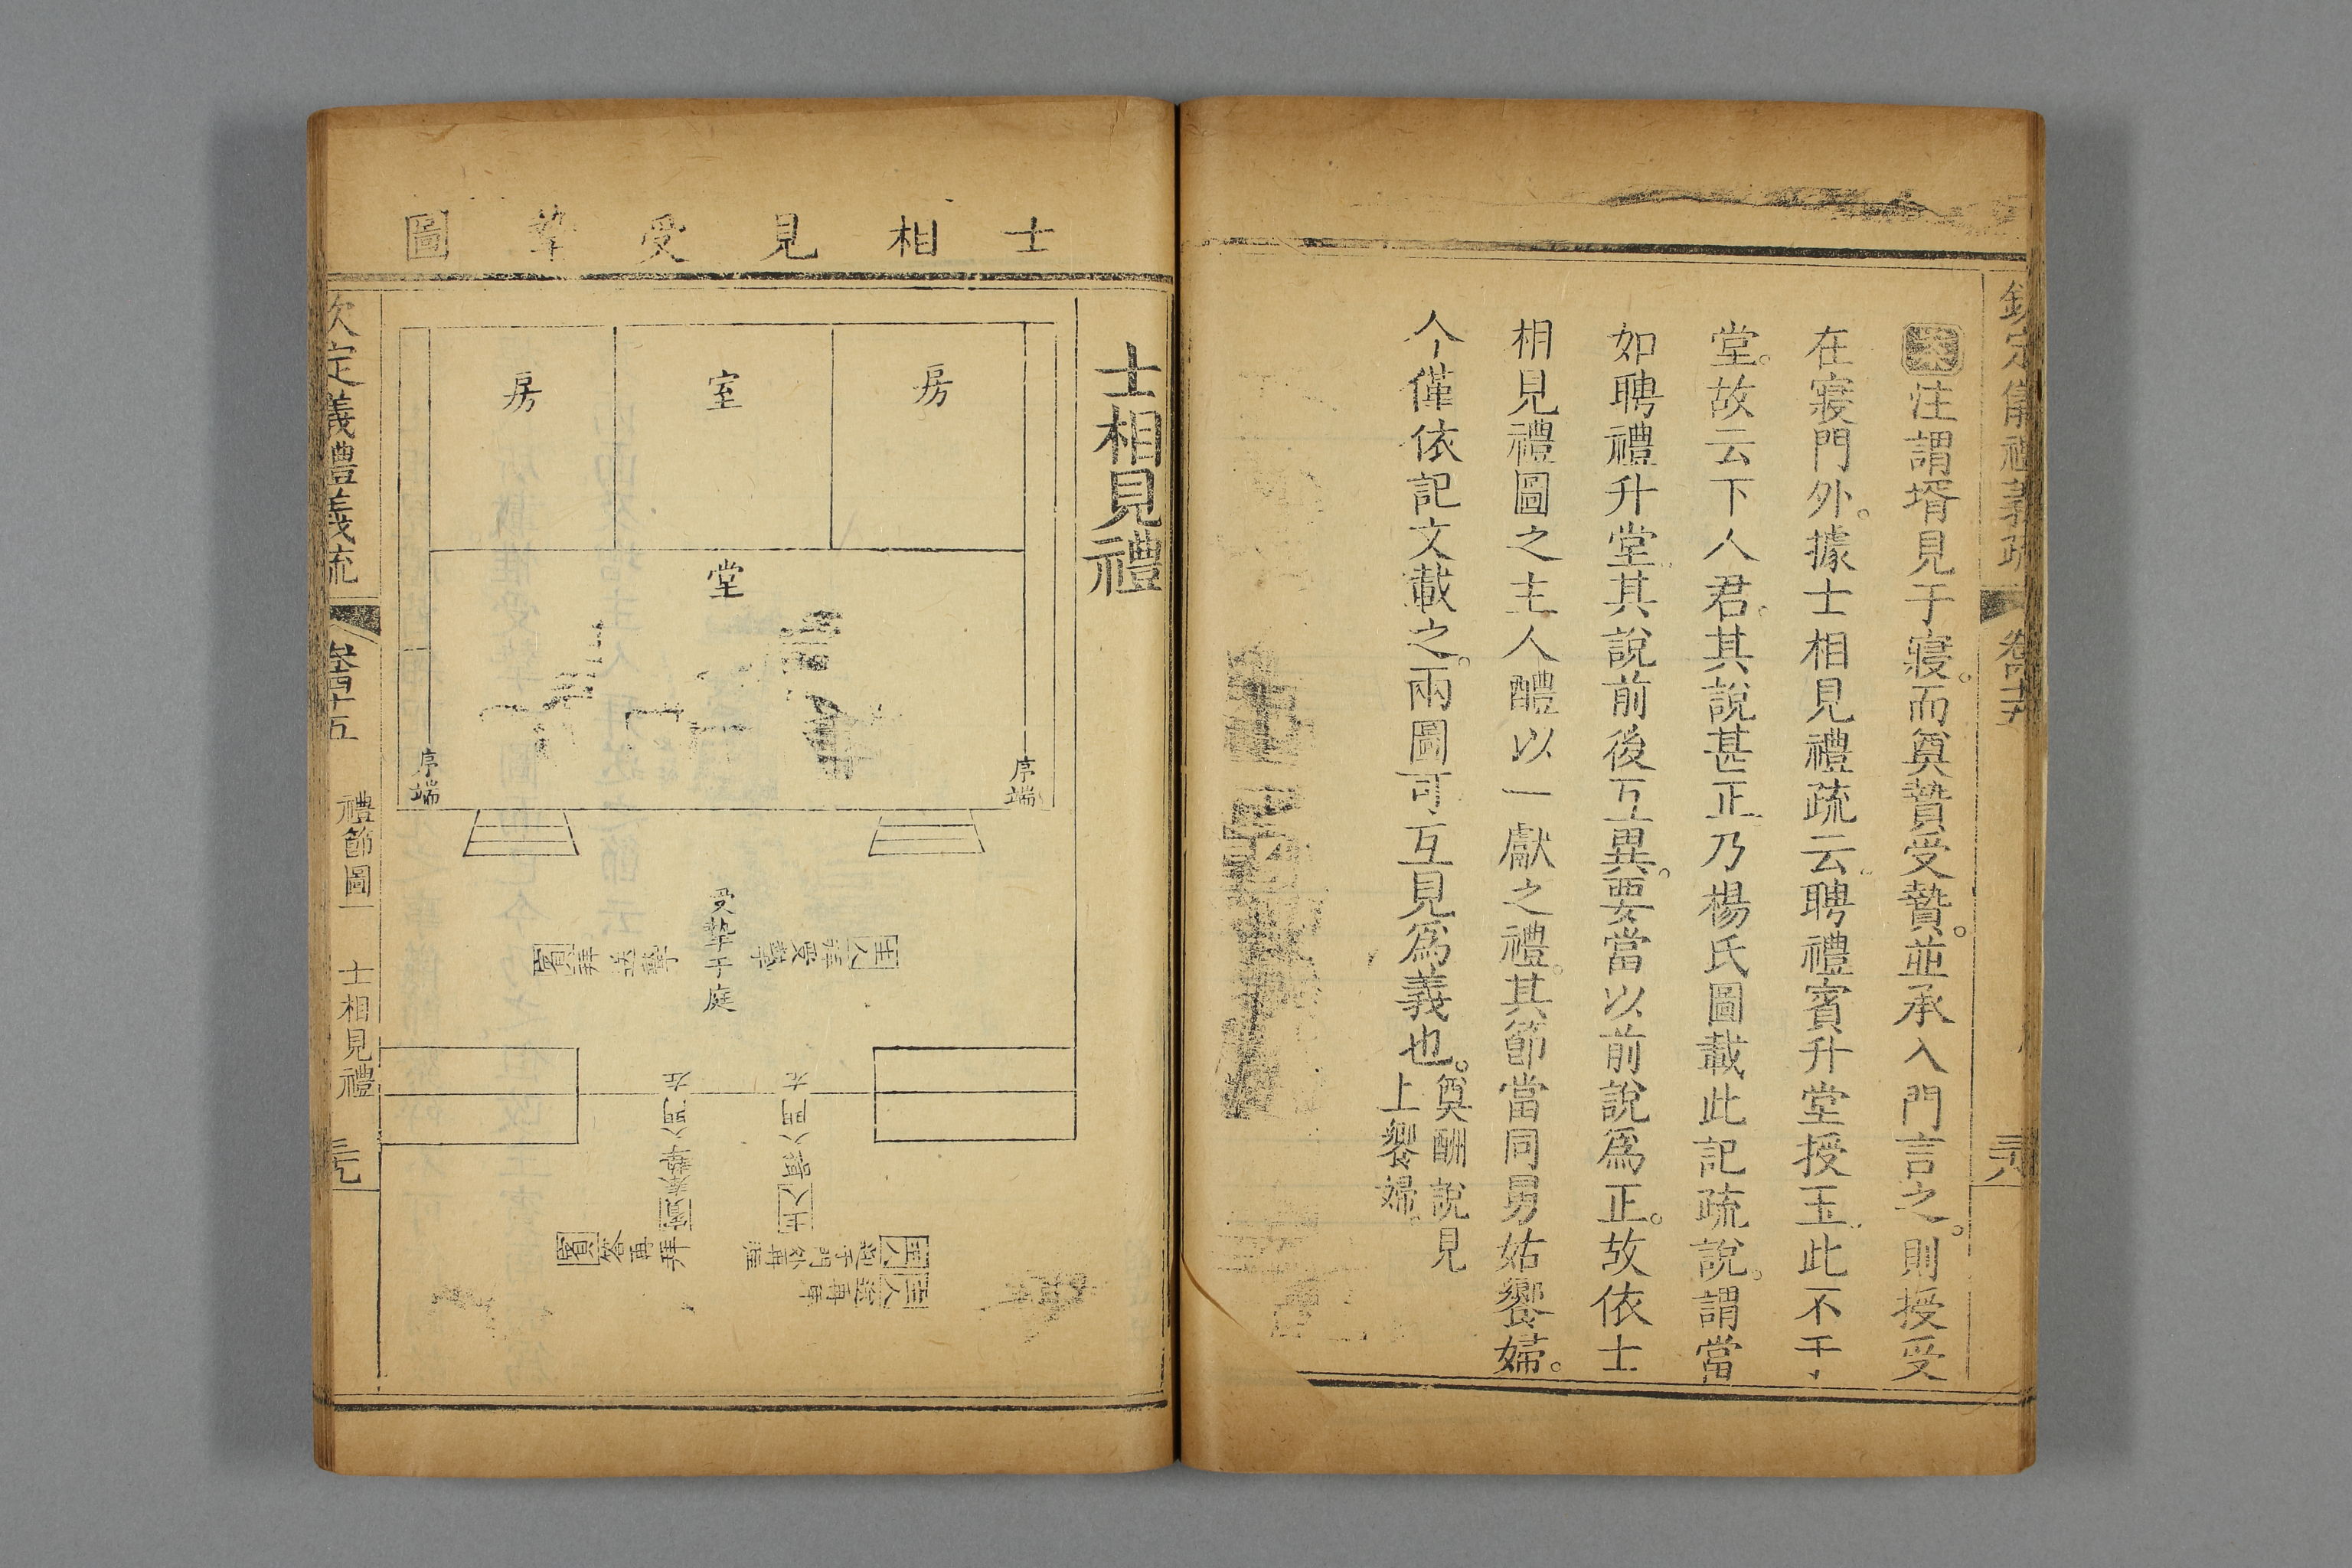 欽定儀禮義疏
卷四十五
三八
案注謂壻見于寢而奠贄受贄並承入門言之則授受
在寢門外據士相見禮疏云聘禮賓升堂授玉此不于
堂故云下人君其說甚正乃楊氏圖載此記疏說謂當
如聘禮升堂其說前後互異要當以前說為正故依士
相見禮圖之主人醴以一獻之禮其節當同舅姑饗婦
今僅依記文載之兩圖可互見為義也奠酬說見
上饗婦
士相見禮
士相見受摯圖
房
室
房
堂
序端
序端
受摯于庭
主人拜受摯
賓拜送摯
主人揖入門右
賓奉摯入門左
主人迎于門外再拜
賓答再拜
主人送再拜
欽定義禮義疏
卷四十五
禮節圖一
士相見禮
三九